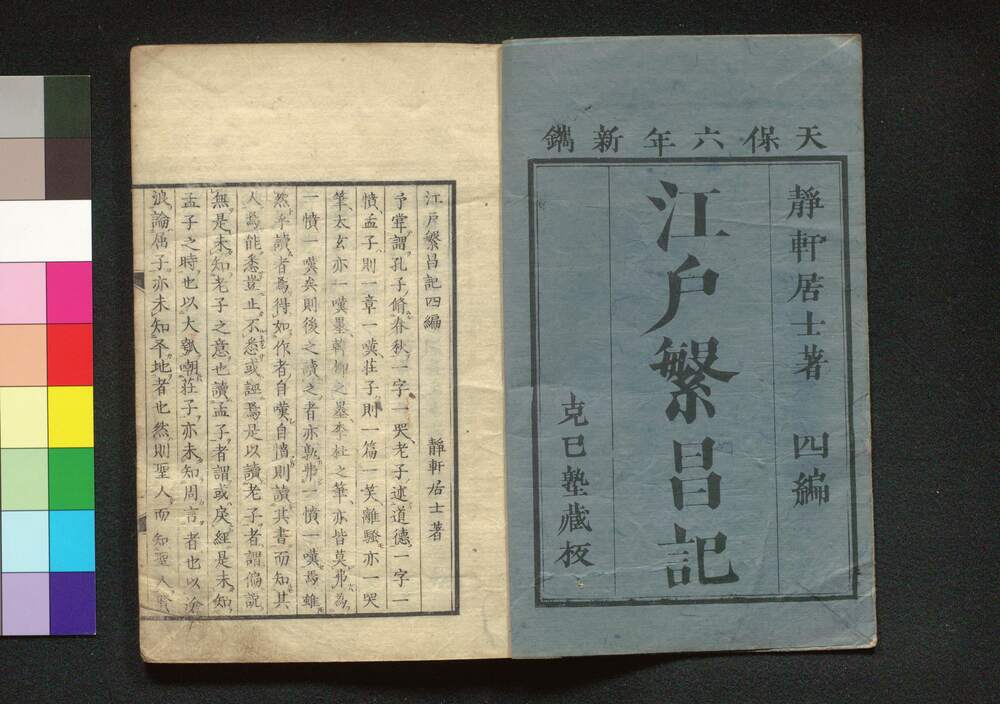 天保六年新鐫
靜軒居士著 四編
江戸繁昌記
克己塾藏板
江戸繁昌記四編
靜軒居士著
予嘗謂孔子脩春秋一字一哭老子述道德一字一
憤孟子則一章一嘆莊子則一篇一笑離騷亦一哭
筆太玄亦一嘆墨韓柳之墨李杜之筆亦皆莫弗為
一憤一嘆矣則後之讀之者亦孰弗一憤一嘆焉雖
然乎讀者為得如作者自嘆自憤則讀其書而知其
人焉能悉豈止不悉或誣焉是以讀老子者謂偏說
無是未知老子之意也讀孟子者謂或戾經是未知
孟子之時也以大瓠嘲莊子亦未知周言者也以
浪論屈子亦未知地者也然則聖人而知聖人